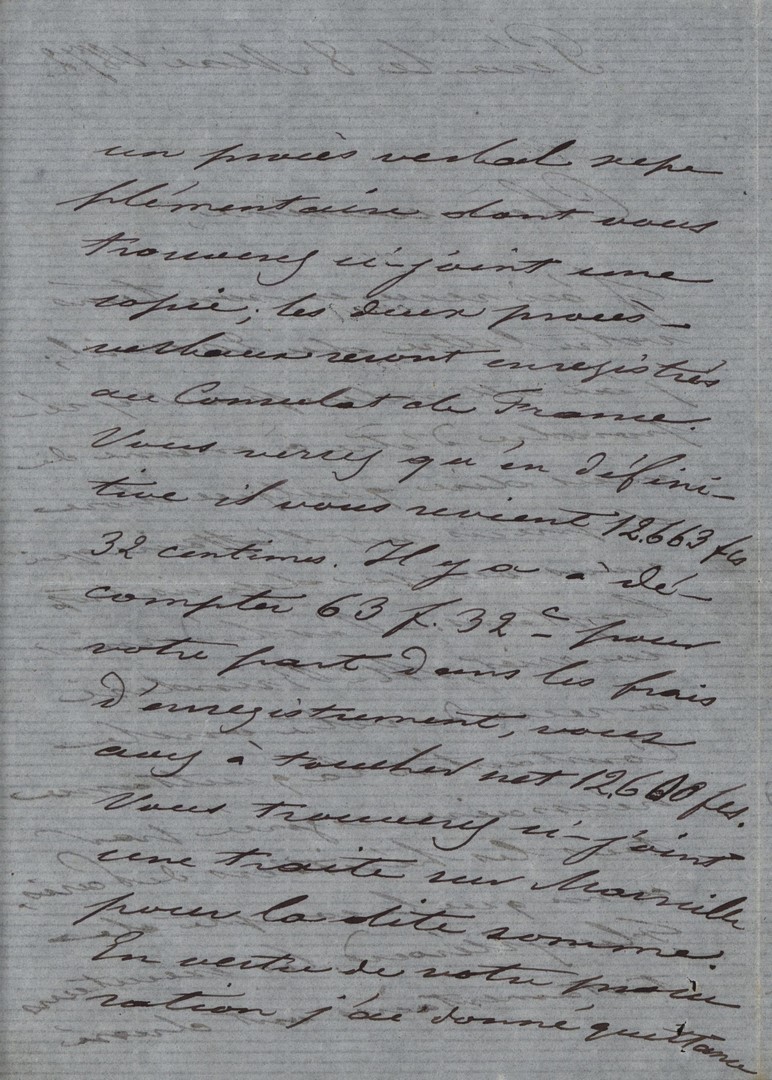 un procès verbal supe
plémentaire dont vous
trouverez ci-joint une
copie; les deux procès-
verbaux seront enregistrés
au Consulat de France.
Vous verrez qu'en défini-
tive il vous revient 12.663 fcs
32 centimes. Il y a à dé-
compter 63 f. 32 c pour
votre part dans les frais
d'enregistrement, vous
avez à toucher net 12.600 fcs.
Vous trouverez ci-joint
une traite sur Marseille
pour la dite somme.
En vertu de votre procu
ration j'ai donné quittance